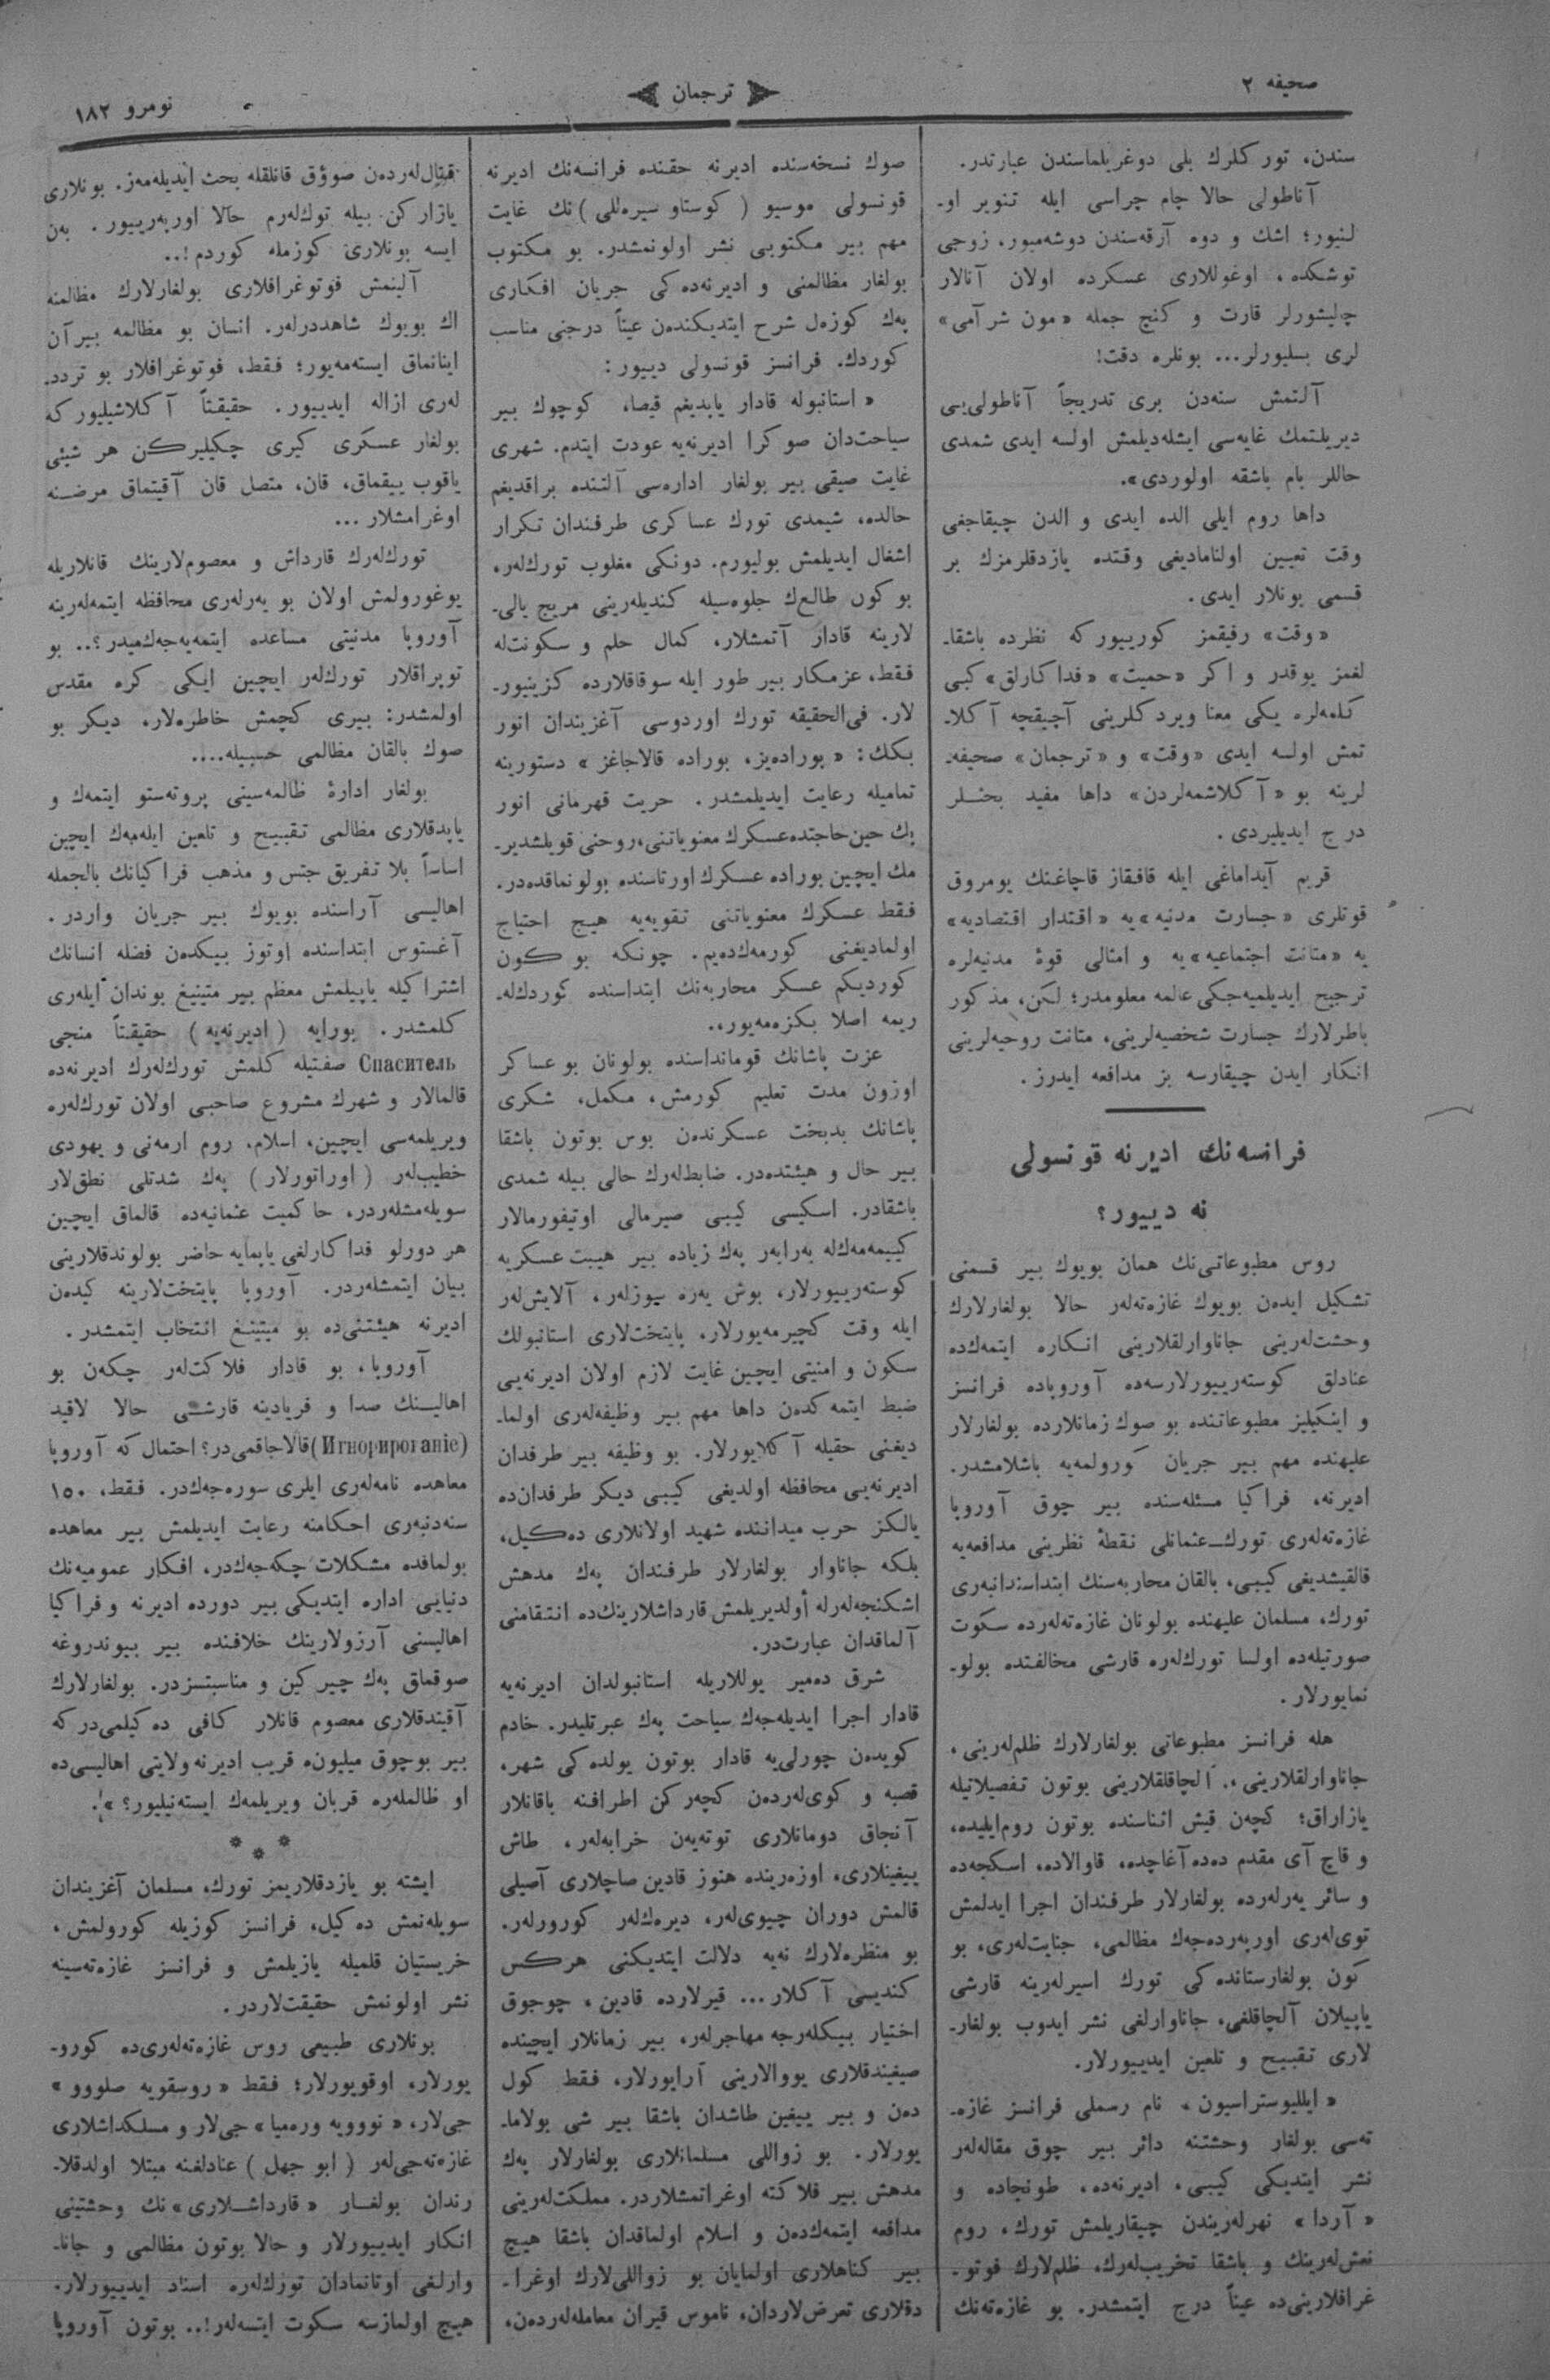 صحیفه ٢
ترجمان
نومرو ١٨٢
سندن، تورکلرك بلی دوغریلماسندن عبارتدر.
آناطولی حالا چام چراسی ایله تنویر او-
لنیور؛ اشك و دوه آرقه‌سندن دوشه‌میور. زوجی
توشکده، اوغوللاری عسکرده اولان آنالار
چلیشورلر قارت و کنج جمله «مون شر آمی»
لری بسلیورلر... بونلره دقت!
آلتمش سنه‌دن بری تدریجاً آناطولی‌یی
دیریلتمك غایه‌سی ایشله‌دیلمش اولسه ایدی شمدی
حاللر بام باشقه اولوردی».
داها روم ایلی الده ایدی و الدن چیقاجغی
وقت تعیین اولنامادیغی وقتده یازدقلرمزك بر
قسمی بونلار ایدی.
«وقت» رفیقمز کورییورکه نظرده باشقا-
لغمز یوقدر و اکر «حمیت» «فداکارلق» کبی
کلمه‌لره یکی معنا ویردکلرینی آچیقچه آکلا-
تمش اولسه ایدی «وقت» و «ترجمان» صحیفه-
لرینه بو «آکلاشمه‌لردن» داها مفید بحثلر
درج ایدیلیردی.
قریم آیداماغی ایله قافقاز قاچاغنك یومروق
قوتلری «جسارت مدنیه»یه «اقتدار اقتصادیه»
یه «متانت اجتماعیه»یه و امثالی قوۀ مدنیه‌لره
ترجیح ایدیلمیه‌جکی عالمه معلومدر؛ لکن، مذکور
باطرلارك جسارت شخصیه‌لرینی، متانت روحیه‌لرینی
انکار ایدن چیقارسه بز مدافعه ایدرز.
فرانسه‌نك ادیرنه قونسولی
نه دییور؟
روس مطبوعاتی‌نك همان بویوك بیر قسمنی
تشکیل ایدەن بویوك غازه‌ته‌لەر حالا بولغارلارك
وحشت‌لەرینی جاناوارلقلارینی انکاره ایتمەك‌ده
عنادلق کوستەرییورلارسه‌ده آوروپاده فرانسز
و اینکیلیز مطبوعاتنده بو صوك زمانلارده بولغارلار
علیهنده مهم بیر جریان کورولمه‌یه باشلامشدر.
ادیرنه، فراکیا مسئله‌سنده بیر چوق آوروپا
غازه‌ته‌لەری تورك-عثمانلی نقطۀ نظرینی مدافعه‌یه
قالقیشدیغی کیبی، بالقان محاربه‌سنك ابتداسندانبەری
تورك، مسلمان علیهنده بولونان غازه‌ته‌لەرده سکوت
صورتیله‌ده اولسا تورك‌لەره قارشی مخالفتده بولو-
نمایورلار.
هله فرانسز مطبوعاتی بولغارلارك ظلم‌لەرینی،
جاناوارلقلارینی، آلچاقلقلارینی بوتون تفصیلاتیله
یازاراق؛ کچەن قیش اثناسنده بوتون روم‌ایلیده،
و قاچ آی مقدم دەده‌آغاچده، قاوالاده، اسکچه‌ده
و سائر یەرلەرده بولغارلار طرفندان اجرا ایدلمش
توی‌لەری اورپەرده‌جەك مظالمی، جنایت‌لەری، بو
کون بولغارستانده‌کی تورك اسیرلەرینه قارشی
یاپیلان آلچاقلغی، جاناوارلغی نشر ایدوب بولغار-
لاری تقبیح و تلعین ایدییورلار.
«ایللیوستراسیون» نام رسملی فرانسز غازه-
ته‌سی بولغار وحشتنه دائر بیر چوق مقاله‌لەر
نشر ایتدیکی کیبی، ادیرنه‌ده، طونجاده و
«آردا» نهرلەریندن چیقاریلمش تورك، روم
نعش‌لەرینك و باشقا تخریب‌لەرك، ظلم‌لارك فوتو-
غرافلارینی‌ده عیناً درج ایتمشدر. بو غازه‌ته‌نك
صوك نسخه‌سنده ادیرنه حقنده فرانسه‌نك ادیرنه
قونسولی موسیو (کوستاو سیره‌للی)نك غایت
مهم بیر مکتوبی نشر اولونمشدر. بو مکتوب
بولغار مظالمنی و ادیرنه‌ده‌کی جریان افکاری
پەك کوزەل شرح ایتدیکندەن عیناً درجنی مناسب
کوردك. فرانسز قونسولی دییور:
«استانبوله قادار یابدیغم قیصا، کوچوك بیر
سیاحت‌دان صوکرا ادیرنه‌یه عودت ایتدم. شهری
غایت صیقی بیر بولغار اداره‌سی آلتنده براقدیغم
حالده، شیمدی تورك عساکری طرفندان تکرار
اشغال ایدیلمش بولیورم. دونکی مغلوب تورك‌لەر،
بو کون طالع‌ك جلوه‌سیله کندیلەرینی مریج یالی-
لارینه قادار آتمشلار، کمال حلم و سکونت‌له
فقط، عزمکار بیر طور ایله سوقاقلارده کزینیور-
لار. فی‌الحقیقه تورك اوردوسی آغزیندان انور
بکك: «بوراده‌یز، بوراده قالاجاغز» دستورینه
تمامیله رعایت ایدیلمشدر. حریت قهرمانی انور
بك حین حاجتده عسکرك معنویاتنی، روحنی قویلشدیر-
مك ایچین بوراده عسکرك اورتاسنده بولونماقده‌در.
فقط عسکرك معنویاتنی تقویه‌یه هیچ احتیاج
اولمادیغنی کورمەك‌دەیم. چونکه بو کون
کوردیکم عسکر محاربه‌نك ابتداسنده کوردك‌له-
ریمه اصلا بکزەمه‌یور.
عزت پاشانك قومانداسنده بولونان بو عساکر
اوزون مدت تعلیم کورمش، مکمل، شکری
پاشانك بدبخت عسکرندەن بوس بوتون باشقا
بیر حال و هیئتده‌در. ضابط‌لەرك حالی بیله شمدی
باشقادر. اسکیسی کیبی صیرمالی اونیفورمالار
کییمەمەك‌له بەرابەر پەك زیاده بیر هیبت عسکریه
کوستەرییورلار، بوش یەره سوزلەر، آلایش‌لەر
ایله وقت کچیرمه‌یورلار. پایتخت‌لاری استانبولك
سکون و امنیتی ایچین غایت لازم اولان ادیرنه‌یی
ضبط ایتمه‌کدەن داها مهم بیر وظیفه‌لەری اولما-
دیغنی حقیله آکلایورلار. بو وظیفه بیر طرفدان
ادیرنه‌یی محافظه اولدیغی کیبی دیکر طرفدان‌ده
یالکز حرب میداننده شهید اولانلاری دەکیل،
بلکه جاناوار بولغارلار طرفندان پەك مدهش
اشکنجه‌لەرله أولدیریلمش قارداشلارینك‌ده انتقامنی
آلماقدان عبارت‌در.
شرق دەمیر یوللاریله استانبولدان ادیرنه‌یه
قادار اجرا ایدیله‌جەك سیاحت پەك عبرتلیدر. خادم
کویدەن چورلی‌یه قادار بوتون یولده‌کی شهر،
قصبه و کوی‌لەردەن کچەرکن اطرافنه باقانلار
آنجاق دومانلاری توته‌یەن خرابه‌لەر، طاش
ییغینلاری، اوزەرینده هنوز قادین صاچلاری آصیلی
قالمش دوران چیوی‌لەر، دیرەك‌لەر کورورلەر.
بو منظره‌لارك نه‌یه دلالت ایتدیکنی هرکس
کندیسی آکلار... قیرلارده قادین، چوجوق
اختیار بیکلەرجه مهاجرلەر، بیر زمانلار ایچینده
صیغیندقلاری یووالارینی آرایورلار، فقط کول
دەن و بیر ییغین طاشدان باشقا بیر شی بولاما-
یورلار. بو زواللی مسلمانلاری بولغارلار پەك
مدهش بیر فلاکته اوغراتمشلاردر. مملکت‌لەرینی
مدافعه ایتمەك‌دەن و اسلام اولماقدان باشقا هیچ
بیر کناهلاری اولمایان بو زواللی‌لارك اوغرا-
دقلاری تعرض‌لاردان، ناموس قیران معامله‌لەردەن،
قتال‌لەردەن صوؤق قانلقله بحث ایدیله‌مەز. بونلاری
یازارکن بیله توك‌لەرم حالا اورپەرییور. بەن
ایسه بونلاری کوزمله کوردم!..
آلینمش فوتوغرافلاری بولغارلارك مظالمنه
اك بویوك شاهددرلەر. انسان بو مظالمه بیر آن
اینانماق ایستەمه‌یور؛ فقط، فوتوغرافلار بو تردد-
لەری ازاله ایدییور. حقیقتاً آکلاشیلیورکه
بولغار عسکری کیری چکیلیرکن هر شیئی
یاقوب ییقماق، قان، متصل قان آقیتماق مرضنه
اوغرامشلار...
تورك‌لەرك قارداش و معصوم‌لارینك قانلاریله
یوغورولمش اولان بو یەرلەری محافظه ایتمه‌لەرینه
آوروپا مدنیتی مساعده ایتمه‌یه‌جەك‌میدر؟.. بو
توپراقلار تورك‌لەر ایچین ایکی کره مقدس
اولمشدر: بیری کچمش خاطره‌لار، دیکر بو
صوك بالقان مظالمی حسبیله....
بولغار ادارۀ ظالمه‌سینی پروته‌ستو ایتمەك و
یاپدقلاری مظالمی تقبیح و تلعین ایله‌مەك ایچین
اساساً بلا تفریق جنس و مذهب فراکیانك بالجمله
اهالیسی آراسنده بویوك بیر جریان واردر.
آغستوس ابتداسنده اوتوز بیکدەن فضله انسانك
اشتراکیله یاپیلمش معظم بیر متینیغ بوندان ایلەری
کلمشدر. بورایه (ادیرنه‌یه) حقیقتاً منجی
Спаситель صفتیله کلمش تورك‌لەرك ادیرنه‌ده
قالمالار و شهرك مشروع صاحبی اولان تورك‌لەره
ویریلمه‌سی ایچین، اسلام، روم ارمه‌نی و یهودی
خطیب‌لەر (اوراتورلار) پەك شدتلی نطق‌لار
سویله‌مشلەردر، حاکمیت عثمانیه‌ده قالماق ایچین
هر دورلو فداکارلغی یاپمایه حاضر بولوندقلارینی
بیان ایتمشلەردر. آوروپا پایتخت‌لارینه کیدەن
ادیرنه هیئتنی‌ده بو میتینغ انتخاب ایتمشدر.
آوروپا، بو قادار فلاکت‌لەر چکەن بو
اهالینك صدا و فریادینه قارشی حالا لاقید
(Игнорированіе) قالاجاقمی‌در؟ احتمال که آوروپا
معاهده نامه‌لەری ایلری سوره‌جەك‌در. فقط، ١٥٠
سنه‌دنبەری احکامنه رعایت ایدیلمش بیر معاهده
بولمافده مشکلات چکه‌جەك‌در، افکار عمومیه‌نك
دنیایی اداره ایتدیکی بیر دورده ادیرنه و فراکیا
اهالیسنی آرزولارینك خلافنده بیر بیوندروغه
صوقماق پەك چیرکین و مناسبتسزدر. بولغارلارك
آقیتدقلاری معصوم قانلار کافی دەکیلمی‌درکه
بیر بوچوق میلیونه قریب ادیرنه ولایتی اهالیسی‌ده
او ظالملەره قربان ویریلمەك ایستەنیلیور؟»
* * *
ایشته بو یازدقلاریمز تورك، مسلمان آغزیندان
سویله‌نمش دەکیل، فرانسز کوزیله کورولمش،
خریستیان قلمیله یازیلمش و فرانسز غازه‌ته‌سینه
نشر اولونمش حقیقت‌لاردر.
بونلاری طبیعی روس غازه‌ته‌لەری‌ده کورو-
یورلار، اوقویورلار؛ فقط «روسقویه صلووو»
جی‌لار، «نوویه ورەمیا» جی‌لار و مسلکداشلاری
غازه‌ته‌جی‌لەر (ابو جهل) عنادلغنه مبتلا اولدقلا-
رندان بولغار «قارداشلاری»نك وحشتینی
انکار ایدییورلار و حالا بوتون مظالمی و جانا-
وارلغی اوتانمادان تورك‌لەره اسناد ایدییورلار.
هیچ اولمازسه سکوت ایتسه‌لەر!.. بوتون آوروپا